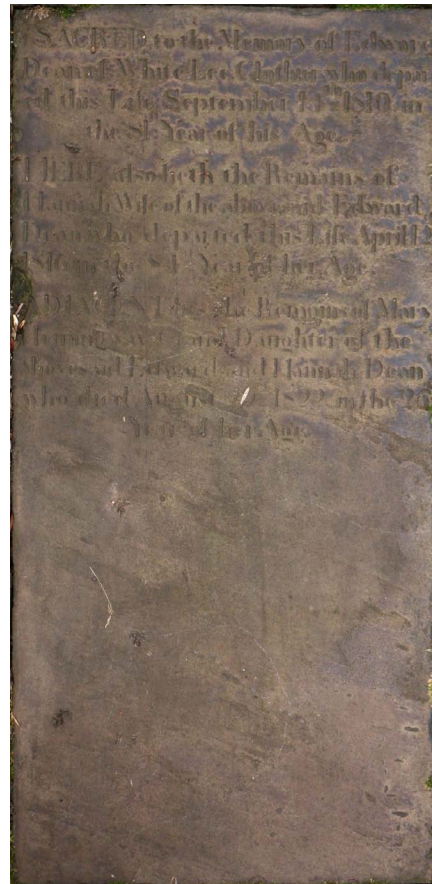 SACRED to the Memory of Edward
Dean of White Lee Clothier who depart
ed this Life September 13th 1810 in
the 81st Year of his Age.
HERE also lieth the Remains of
Hannah Wife of the abovesaid Edward
Dean who departed this Life April 12
in the Year of her Age
ADJACENT lies the Remains of Mary
Hemmingway Grand Daughter of the
abovesaid Edward and Hannah Dean
who died August 1822 in the 20
Year of her Age.